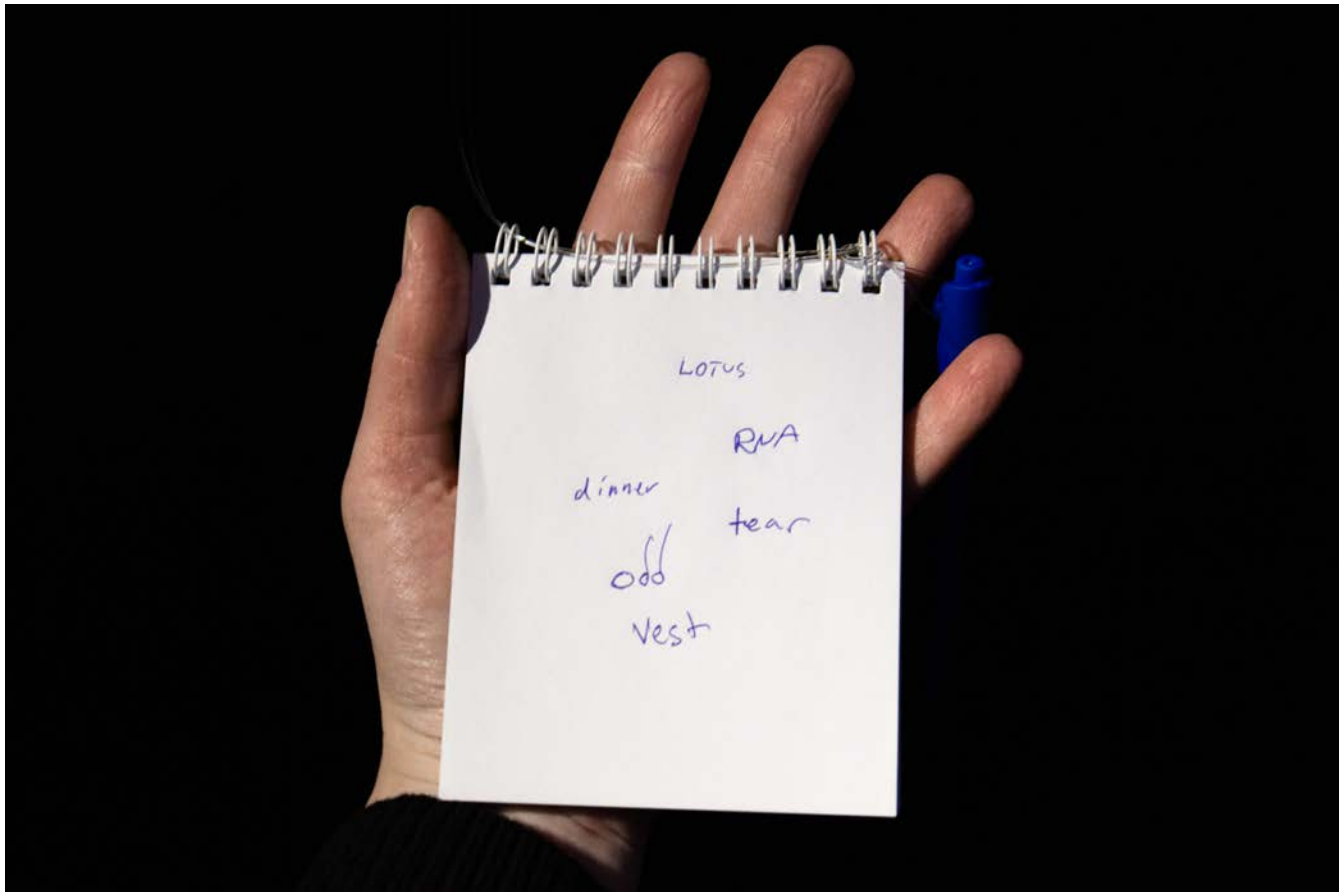 LOTUS
RNA
dinner
tear
odd
Vest